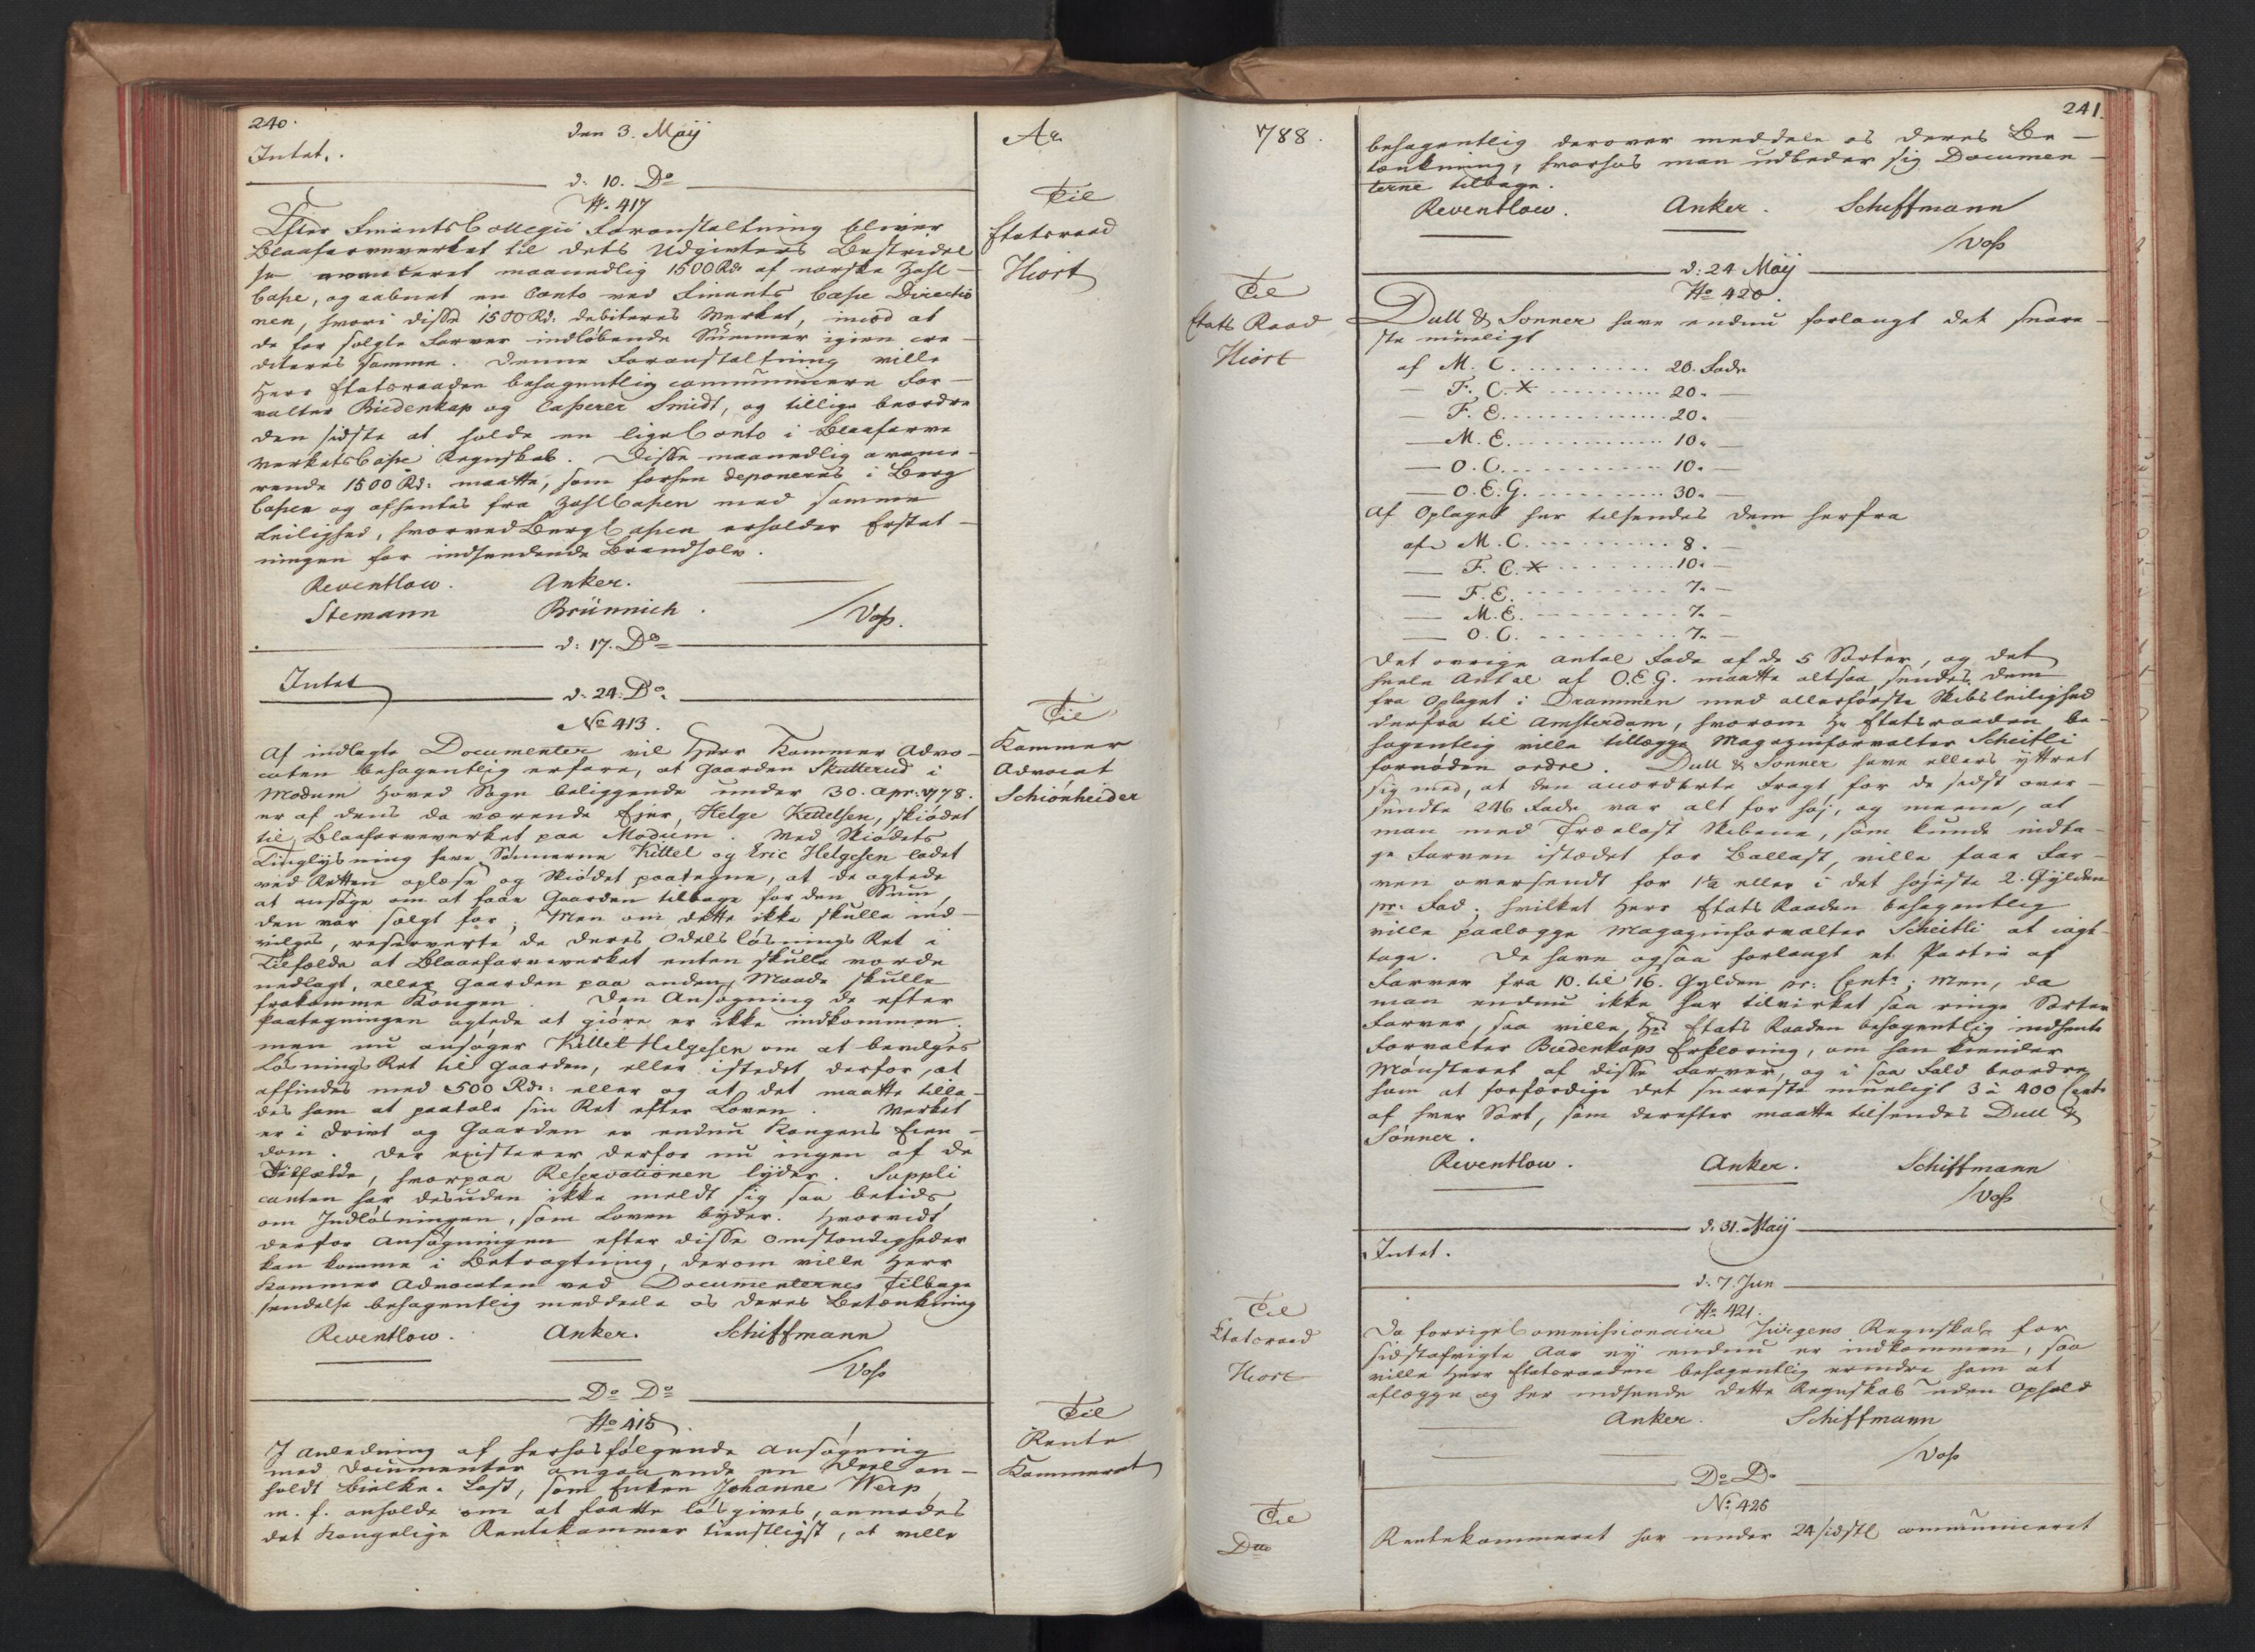 240.
den 3. Maij
Ao
Intet.
d: 10. Do
No 417
Til
Etatsraad
Hiort
Efter Finants Collegii Foranstaltning bliver
Blaafarveverket til dets Udgivters Bestridel
se avanceret maanedlig 1500 Rd. af norske Zahl-
Casse, og aabnet en Conto ved Finants Casse Directio
nen, hvori disse 1500 Rd: debiteres Werket, imod at
de for solgte Farver indløbende Summer igien cre-
diteres samme. Denne Foranstaltning ville
Herr Etatsraaden behagentlig communicere For-
valter Biedenkap og Casserer Smidt, og tillige beordre
den sidste at holde en lige Conto i Blaafarve
Verkets Casse Regnskab. Disse maanedlig avance-
rende 1500 Rd: maatte, som forhen deponeres i Berg
Cassen og afhentes fra ZahlCassen med samme
Leilighed, hvorved BergCassen erholder Erstat-
ningen for indsendende Brandsølv.
Reventlow. Anker.
Stemann Brünnich. /Voss.
d: 17. Do
Intet
d. 24: Do.
No 413.
Til
Kammer
Advocat
Schiønheider
Af indlagte Documenter vil Herr Kammer Advo-
caten behagentlig erfare, at Gaarden Skutterud i
Modum Hoved Sogn beliggende under 30. Apr: 1778.
er af dens da værende Ejer, Helge Kittelsen, skiødet
til Blaafarveverket paa Modum. Med Skiødets
Tinglysning have Sønnerne Kittel og Eric Helgesen ladet
ved Retten oplæse og Skiødet paategne, at de agtede
at ansøge om at faae Gaarden tilbage for den Sum,
den var solgt for; Men om dette ikke skulle ind-
vilges, reserverte de deres Odels løsnings Ret i
Tilfælde at Blaaefarveverket enten skulle vorde
nedlagt, eller Gaarden paa anden Maade skulle
frakomme Kongen. Den Ansøgning de efter
Paategningen agtede at giøre er ikke indkommen
men nu ansøger Kittel Helgesen om at bevilges
Løsnings Ret til Gaarden, eller istedet derfor, at
affindes med 500 Rd.: eller og at det maatte tilla-
des ham at paatale sin Ret efter Loven. Werket
er i Drivt og Gaarden er endnu Kongens Eien-
dom. Der existerer derfor nu ingen af de
Tilfælde, hvorpaa Reservationen lyder. Suppli
canten har desuden ikke meldt sig saa betids
om Indløsningen, som Loven byder. Hvorvidt
derfor Ansøgningen efter disse Omstændigheder
kan komme i Betragtning, derom ville Herr
Kammer Advocaten ved Documenternes Tilbage
sendelse behagentlig meddeele os deres Betænkning
Reventlow. Anker. Schiffmann
/Voss
Do Do
No 415
Til
Rente
Kammeret
I Anledning af herhos følgende Ansøgning
med Documenter angaaende en Deel an-
holdt Bielke-Last, som Enken Johanne Werp
m. f. anholde om at faae løsgives, anmodes
det Kongelige Rentekammer tienstligst, at ville
241.
788.
behagentlig derover meddele os deres Be-
tænkning, hvorhos man udbeder sig Documen-
terne tilbage.
Reventlow. Anker. Schiffmann
/Voss
d: 24 Maij
No 420.
Til
Etats Raad
Hiort
Dull & Sønner have endnu forlangt det snare-
ste mueligt
af M. C. .......... 20. Fade
— F. C. X .......... 20. —
— F. E. .......... 20.
— M. E. .......... 10. —
— O. C. .......... 10. —
— O. E. G. .......... 30. —
Af Oplaget her tilsendes dem herfra
af M. C. .......... 8. —
— F. C. X .......... 10. —
— F. E. .......... 7. —
— M. E. .......... 7. —
— O. C. .......... 7. —
Det øvrige Antal Fade af de 5 Sorter, og det
heele Antal af O. E. G. maatte altsaa sendes dem
fra Oplaget i Drammen med allerførste Skibsleilighed
derfra til Amsterdam, hvorom Hr Etatsraaden be-
hagentlig ville tillægge Magazinforvalter Scheitli
fornøden Ordre. Dull & Sønner have ellers yttret
sig med, at den accorderte Fragt for de sidst over-
sendte 246 Fade var alt for høj, og meene, at
man med Trælast Skibene, som kunde indta-
ge Farven istædet for Ballast, ville faae Far-
ven oversendt for 1½ eller i det højeste 2. Gylden
pr. Fad; hvilket Herr Etats Raaden behagentlig
ville paalægge Magazinforvalter Scheitli at iagt-
tage. De have ogsaa forlangt et Partie af
Farver fra 10. til 16. Gylden pr: Centr; Men, da
man endnu ikke har tilvirket saa ringe Sorter
Farver, saa ville Hr. Etats Raaden behagentlig indhente
Forvalter Biedenkaps Erklæring, om han kiender
Mønsteret af disse Farver, og i saa Fald beordre
ham at forfærdige det snareste mueligt 3 à 400 Centr
af hver Sort, som derefter maatte tilsendes Dull &
Sønner.
Reventlow. Anker. Schiffmann
/Voss
d. 31. Maij
Intet.
d: 7. Jun
No 421.
Til
Etatsraad
Hiort
Da forrige Commissionaire Jürgens Regnskab for
sidstafvigte Aar ey endnu er indkommen, saa
ville Herr Etatsraaden behagentlig erindre ham at
aflægge og her indsende dette Regnskab uden Ophold
Anker. Schiffmann
/Voss
Do Do
No 426
Til
Dto
Rentekammeret har under 24 sidstl communiceret